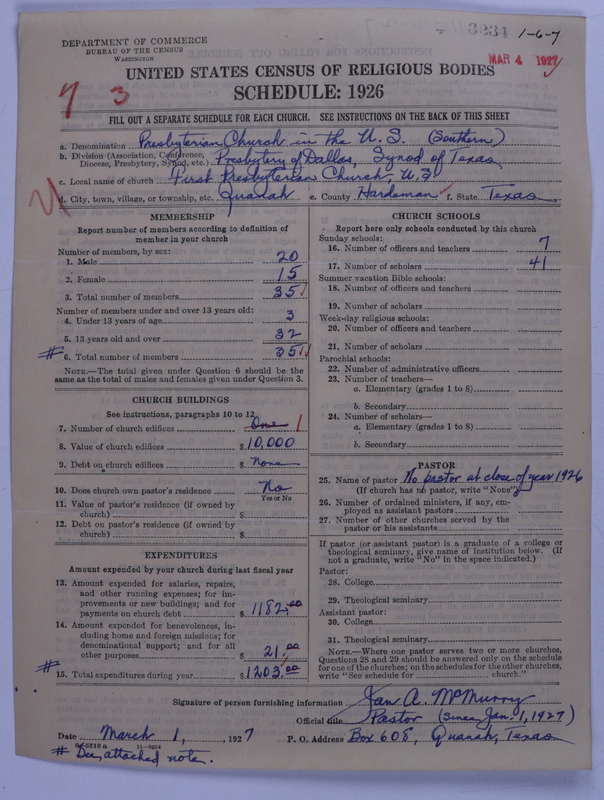 3234 1-6-7
DEPARTMENT OF COMMERCE
BUREAU OF THE CENSUS
WASHINGTON
MAR 4 1927
UNITED STATES CENSUS OF RELIGIOUS BODIES
SCHEDULE: 1926
7 3
FILL OUT A SEPARATE SCHEDULE FOR EACH CHURCH. SEE INSTRUCTIONS ON THE BACK OF THIS SHEET
a. Denomination Presbyterian Church in the U. S. (Southern)
b. Division (Association, Conference, Diocese, Presbytery, Synod, etc.) Presbytery of Dallas, Synod of Texas
c. Local name of church First Presbyterian Church, U. S.
d. City, town, village, or township, etc. Quanah e. County Hardeman f. State Texas
MEMBERSHIP
Report number of members according to definition of
member in your church
Number of members, by sex:
1. Male 20
2. Female 15
3. Total number of members 35
Number of members under and over 13 years old:
4. Under 13 years of age 3
5. 13 years old and over 32
# 6. Total number of members 35
NOTE.—The total given under Question 6 should be
same as the total of males and females given under Question 3.
CHURCH BUILDINGS
See instructions, paragraphs 10 to 12
7. Number of church edifices One 1
8. Value of church edifices $10,000
9. Debt on church edifices $ None
10. Does church own pastor's residence No
Yes or No
11. Value of pastor's residence (if owned by
church) $
12. Debt on pastor's residence (if owned by
church) $
EXPENDITURES
Amount expended by your church during last fiscal year
13. Amount expended for salaries, repairs,
and other running expenses; for im-
provements or new buildings; and for
payments on church debt $ 1182.00
14. Amount expended for benevolences, in-
cluding home and foreign missions; for
denominational support; and for all
other purposes $ 21.00
# 15. Total expenditures during year $1203.00
CHURCH SCHOOLS
Report here only schools conducted by this church
Sunday schools:
16. Number of officers and teachers 7
17. Number of scholars 41
Summer vacation Bible schools:
18. Number of officers and teachers
19. Number of scholars
Week-day religious schools:
20. Number of officers and teachers
21. Number of scholars
Parochial schools:
22. Number of administrative officers
23. Number of teachers—
a. Elementary (grades 1 to 8)
b. Secondary
24. Number of scholars—
a. Elementary (grades 1 to 8)
b. Secondary
PASTOR
25. Name of pastor No pastor at close of year 1926
(If church has no pastor, write "None")
26. Number of ordained ministers, if any, em-
ployed as assistant pastors
27. Number of other churches served by the
pastor or his assistants
If pastor (or assistant pastor) is a graduate of a college or
theological seminary, give name of institution below. (If
not a graduate, write "No" in the space indicated.)
Pastor:
28. College
29. Theological seminary
Assistant pastor:
30. College
31. Theological seminary
NOTE.—Where one pastor serves two or more churches,
Questions 28 and 29 should be answered only on the schedule
for one of the churches; on the schedules for the other churches,
write "See schedule for church."
Signature of person furnishing information Ian A. McMurry
Official title Pastor (Since Jan. 1, 1927)
Date March 1, 1927 P. O. Address Box 608, Quanah, Texas
11—9604
# See attached note.